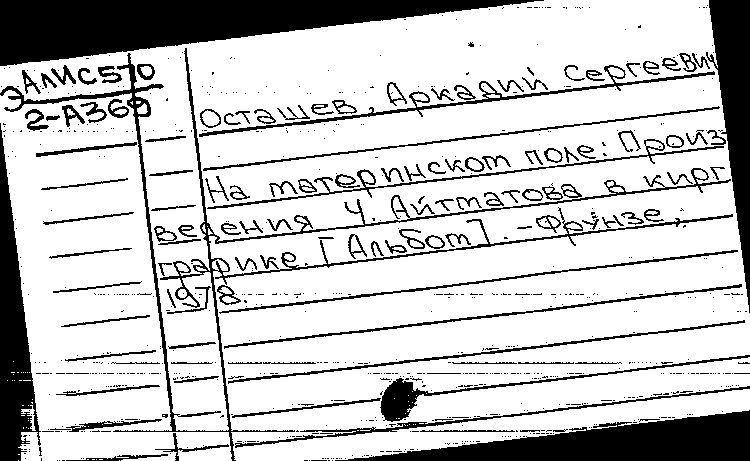 ЭАлИС570
2-А369
Осташев, Аркадий Сергеевич
На материнском поле: Произ-
ведения Ч. Айтматова в кирг
графике. [Альбом]. -Фрунзе,
1978.